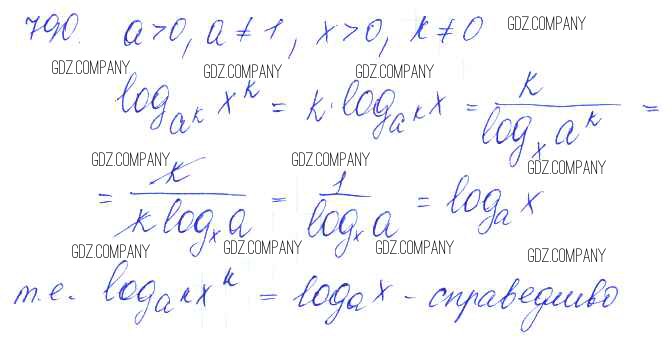 790. a>0, a≠1, x>0, k≠0 GDZ.COMPANY
GDZ.COMPANY GDZ.COMPANY GDZ.COMPANY
log_{a^k} x^k = k·log_{a^k} x = k / log_x a^k =
GDZ.COMPANY GDZ.COMPANY GDZ.COMPANY
= k / k log_x a = 1 / log_x a = log_a x
GDZ.COMPANY GDZ.COMPANY GDZ.COMPANY GDZ.COMPANY
т.е. log_{a^k} x^k = log_a x - справедливо